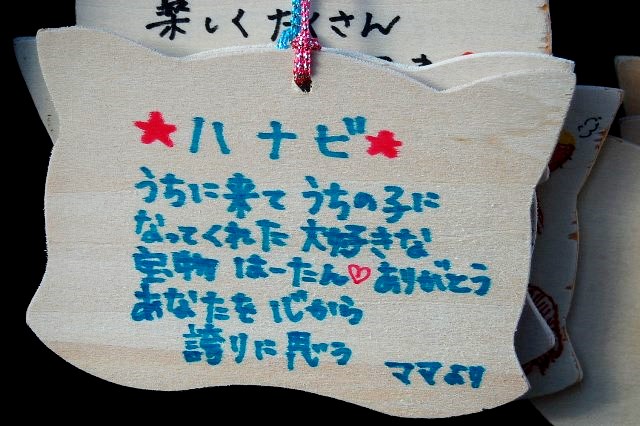 楽しくたくさん
★ハナビ★
うちに来て うちの子に
なってくれた 大好きな
宝物 はーたん♡ありがとう
あなたを 心から
誇りに思う
ママより